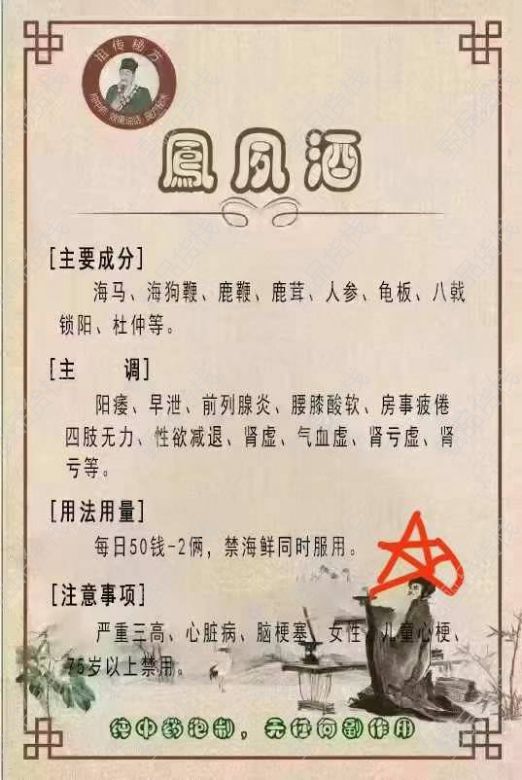 祖传秘方
鳳夙酒
[主要成分]
海马、海狗鞭、鹿鞭、鹿茸、人参、龟板、八戟
锁阳、杜仲等。
[主 调]
阳痿、早泄、前列腺炎、腰膝酸软、房事疲倦
四肢无力、性欲减退、肾虚、气血虚、肾亏虚、肾
亏等。
[用法用量]
每日50钱-2俩，禁海鲜同时服用。
[注意事项]
严重三高、心脏病、脑梗塞、女性、儿童心梗、
75岁以上禁用。
纯中药泡制，无任何副作用